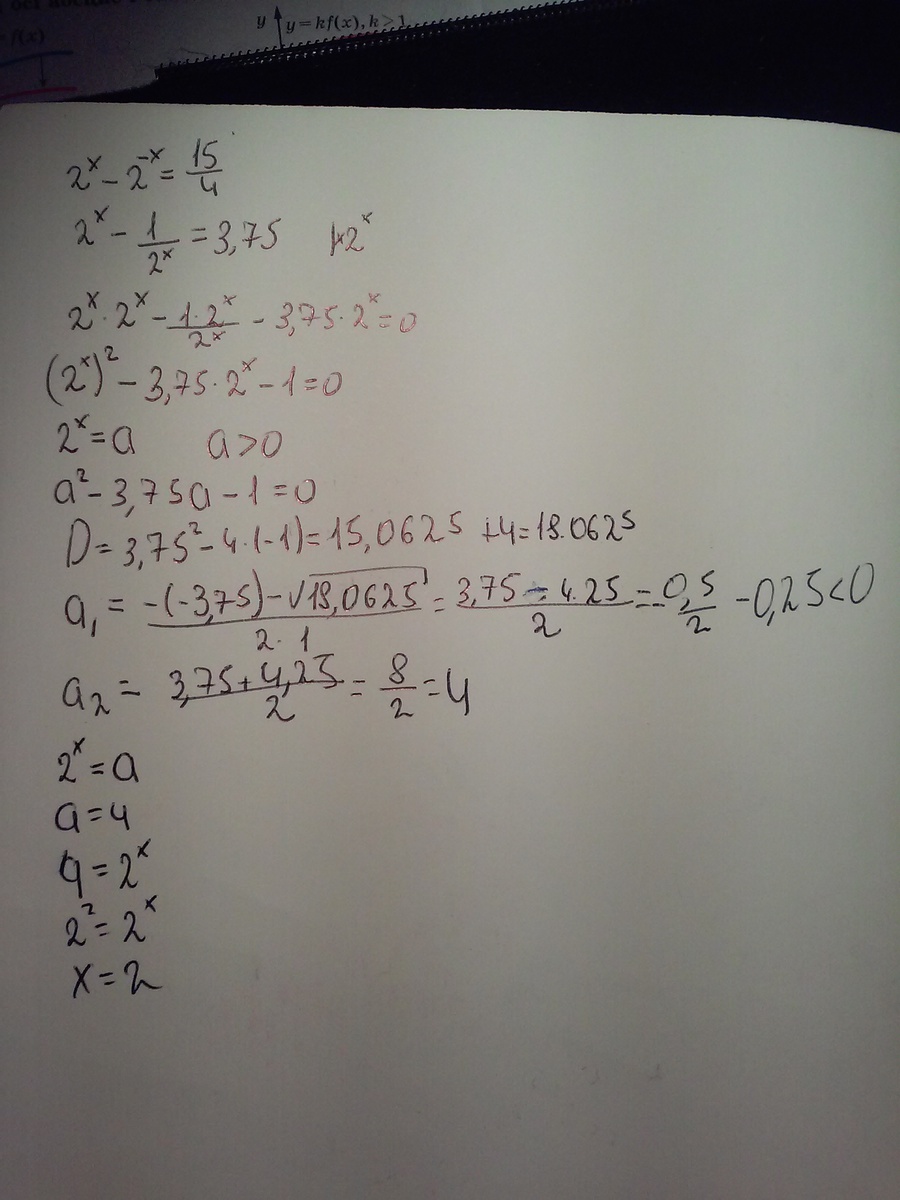 f(x)
y y = kf(x), k > 1
2^x - 2^-x = 15/4
2^x - 1/2^x = 3,75 |·2^x
2^x · 2^x - 1·2^x/2^x - 3,75·2^x = 0
(2^x)^2 - 3,75·2^x - 1 = 0
2^x = a a > 0
a^2 - 3,75a - 1 = 0
D = 3,75^2 - 4·(-1) = 15,0625 + 4 = 18.0625
a₁ = -(-3,75) - √18,0625 / 2·1 = 3,75 - 4.25 / 2 = -0,5/2 - 0,25 < 0
a₂ = 3,75 + 4,25 / 2 = 8/2 = 4
2^x = a
a = 4
4 = 2^x
2^2 = 2^x
x = 2